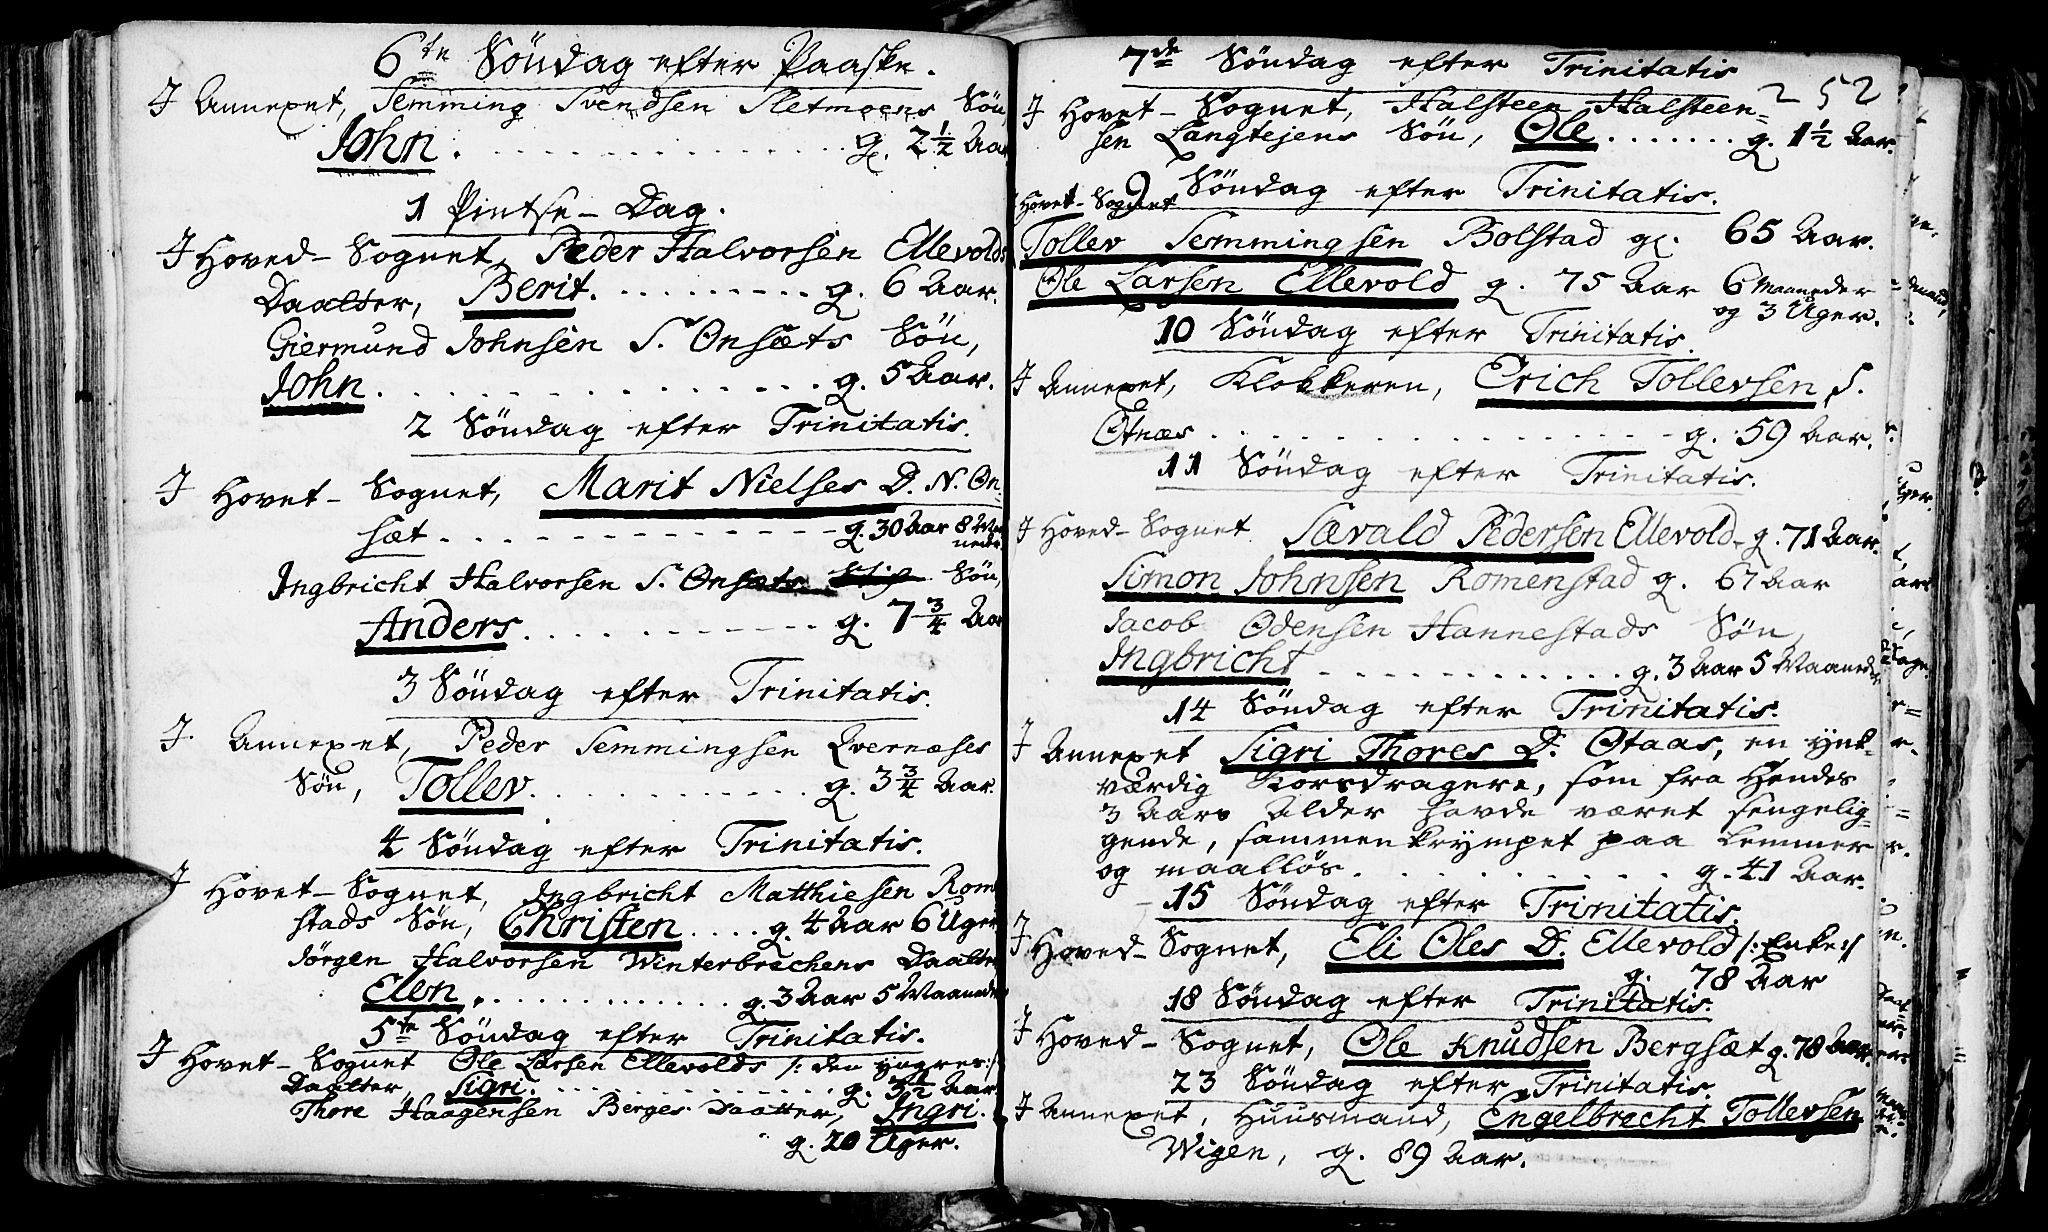 6te Söndag efter Paaske.
J Annexet, Semming Svendsen Sletmoens Sön,
John. g. 2 1/2 Aar
1 Pintse-Dag.
J Hoved-Sognet, Peder Halvorsen Ellevolds
Daatter, Berit. g. 6 Aar.
Giermund Johnsen S. Onsæts Sön,
John. g. 5 Aar.
2 Söndag efter Trinitatis.
J Hovet-Sognet, Marit Nielses D. N. On-
sæt. g. 30 Aar 8 Maa
neder
Ingbricht Halvorsen S. Onsæts Sön,
Anders. g. 7 3/4 Aar
3 Söndag efter Trinitatis.
J. Annexet, Peder Semmingsen Qvernæses
Sön, Tollev. g. 3 3/4 Aar.
4 Söndag efter Trinitatis.
J Hovet-Sognet, Ingbricht Matthiesen Rom
stads Sön, Christen. g. 4 Aar 6 Uger
Jörgen Halvorsen Winterbrechens Daatter
Elen. g. 3 Aar 5 Maaneder
5te Söndag efter Trinitatis.
J Hovet-Sognet Ole Larsen Ellevolds /: den yngres :/
Daatter, Sigri. g. 3 1/2 Aar
Thore Haagensen Berges Daatter, Ingri.
g. 20 Uger.
7de Söndag efter Trinitatis
252
J Hovet-Sognet, Halsteen Halsteen-
sen Langtejens Sön, Ole. g. 1 1/2 Aar.
9 Söndag efter Trinitatis.
Hovet-Sognet
Tollev Semmingsen Bolstad g. 65 Aar.
Ole Larsen Ellevold g. 75 Aar 6 Maaneder
og 3 Uger.
10 Söndag efter Trinitatis.
J Annexet, Klokkeren, Erich Tollevsen S.
Otnæs. g. 59 Aar.
11 Söndag efter Trinitatis.
J Hoved-Sognet. Sævald Pedersen Ellevold g. 71 Aar.
Simon Johnsen Romenstad g. 67 Aar
Jacob Odensen Hannestads Sön,
Ingbricht. g. 3 Aar 5 Maaneder
14 Söndag efter Trinitatis.
J Annexet Sigri Thores D. Otaas, en ynk-
værdig Korsdragere, som fra Hendes
3 Aars Alder havde været sengelig-
gende, sammenkrympet paa Lemmer
og maallös. g. 41 Aar.
15 Söndag efter Trinitatis.
J Hoved-Sognet, Eli Oles D. Ellevold /: Enke :/
g. 78 Aar
18 Söndag efter Trinitatis.
J Hoved-Sognet, Ole Knudsen Bergsæt g. 78 Aar.
23 Söndag efter Trinitatis.
J Annexet, Huusmand, Engelbrecht Tollevsen
Wigen, g. 89 Aar.